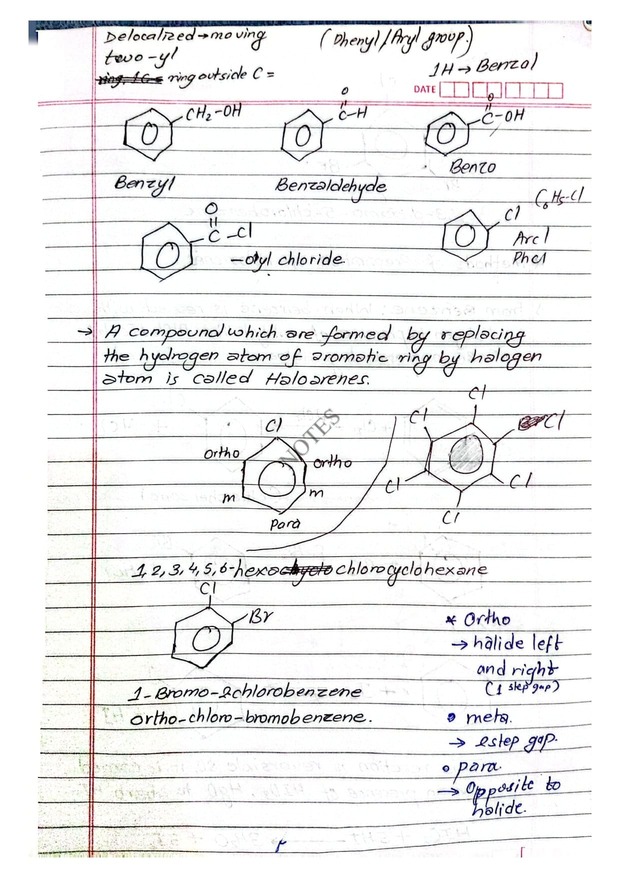 Delocalized → moving (Phenyl/Aryl group.)
two -yl
ring outside C =
1H → Benzal
DATE
CH2-OH
O
C-H
O
C-OH
Benzyl
Benzaldehyde
Benzo
O
C-Cl
-oyl chloride
C6H5-Cl
Cl
Arcl
Phcl
→ A compound which are formed by replacing
the hydrogen atom of aromatic ring by halogen
atom is called Haloarenes.
NOTES
Cl
Ortho
Ortho
m
m
Para
Cl
Cl
Cl
Cl
Cl
Cl
1, 2, 3, 4, 5, 6-hexachlorocyclohexane
Cl
Br
1-Bromo-2chlorobenzene
ortho-chloro-bromobenzene.
* Ortho
→ halide left
and right
(1 step gap)
• meta.
→ 2step gap.
o para
→ Opposite to
halide.